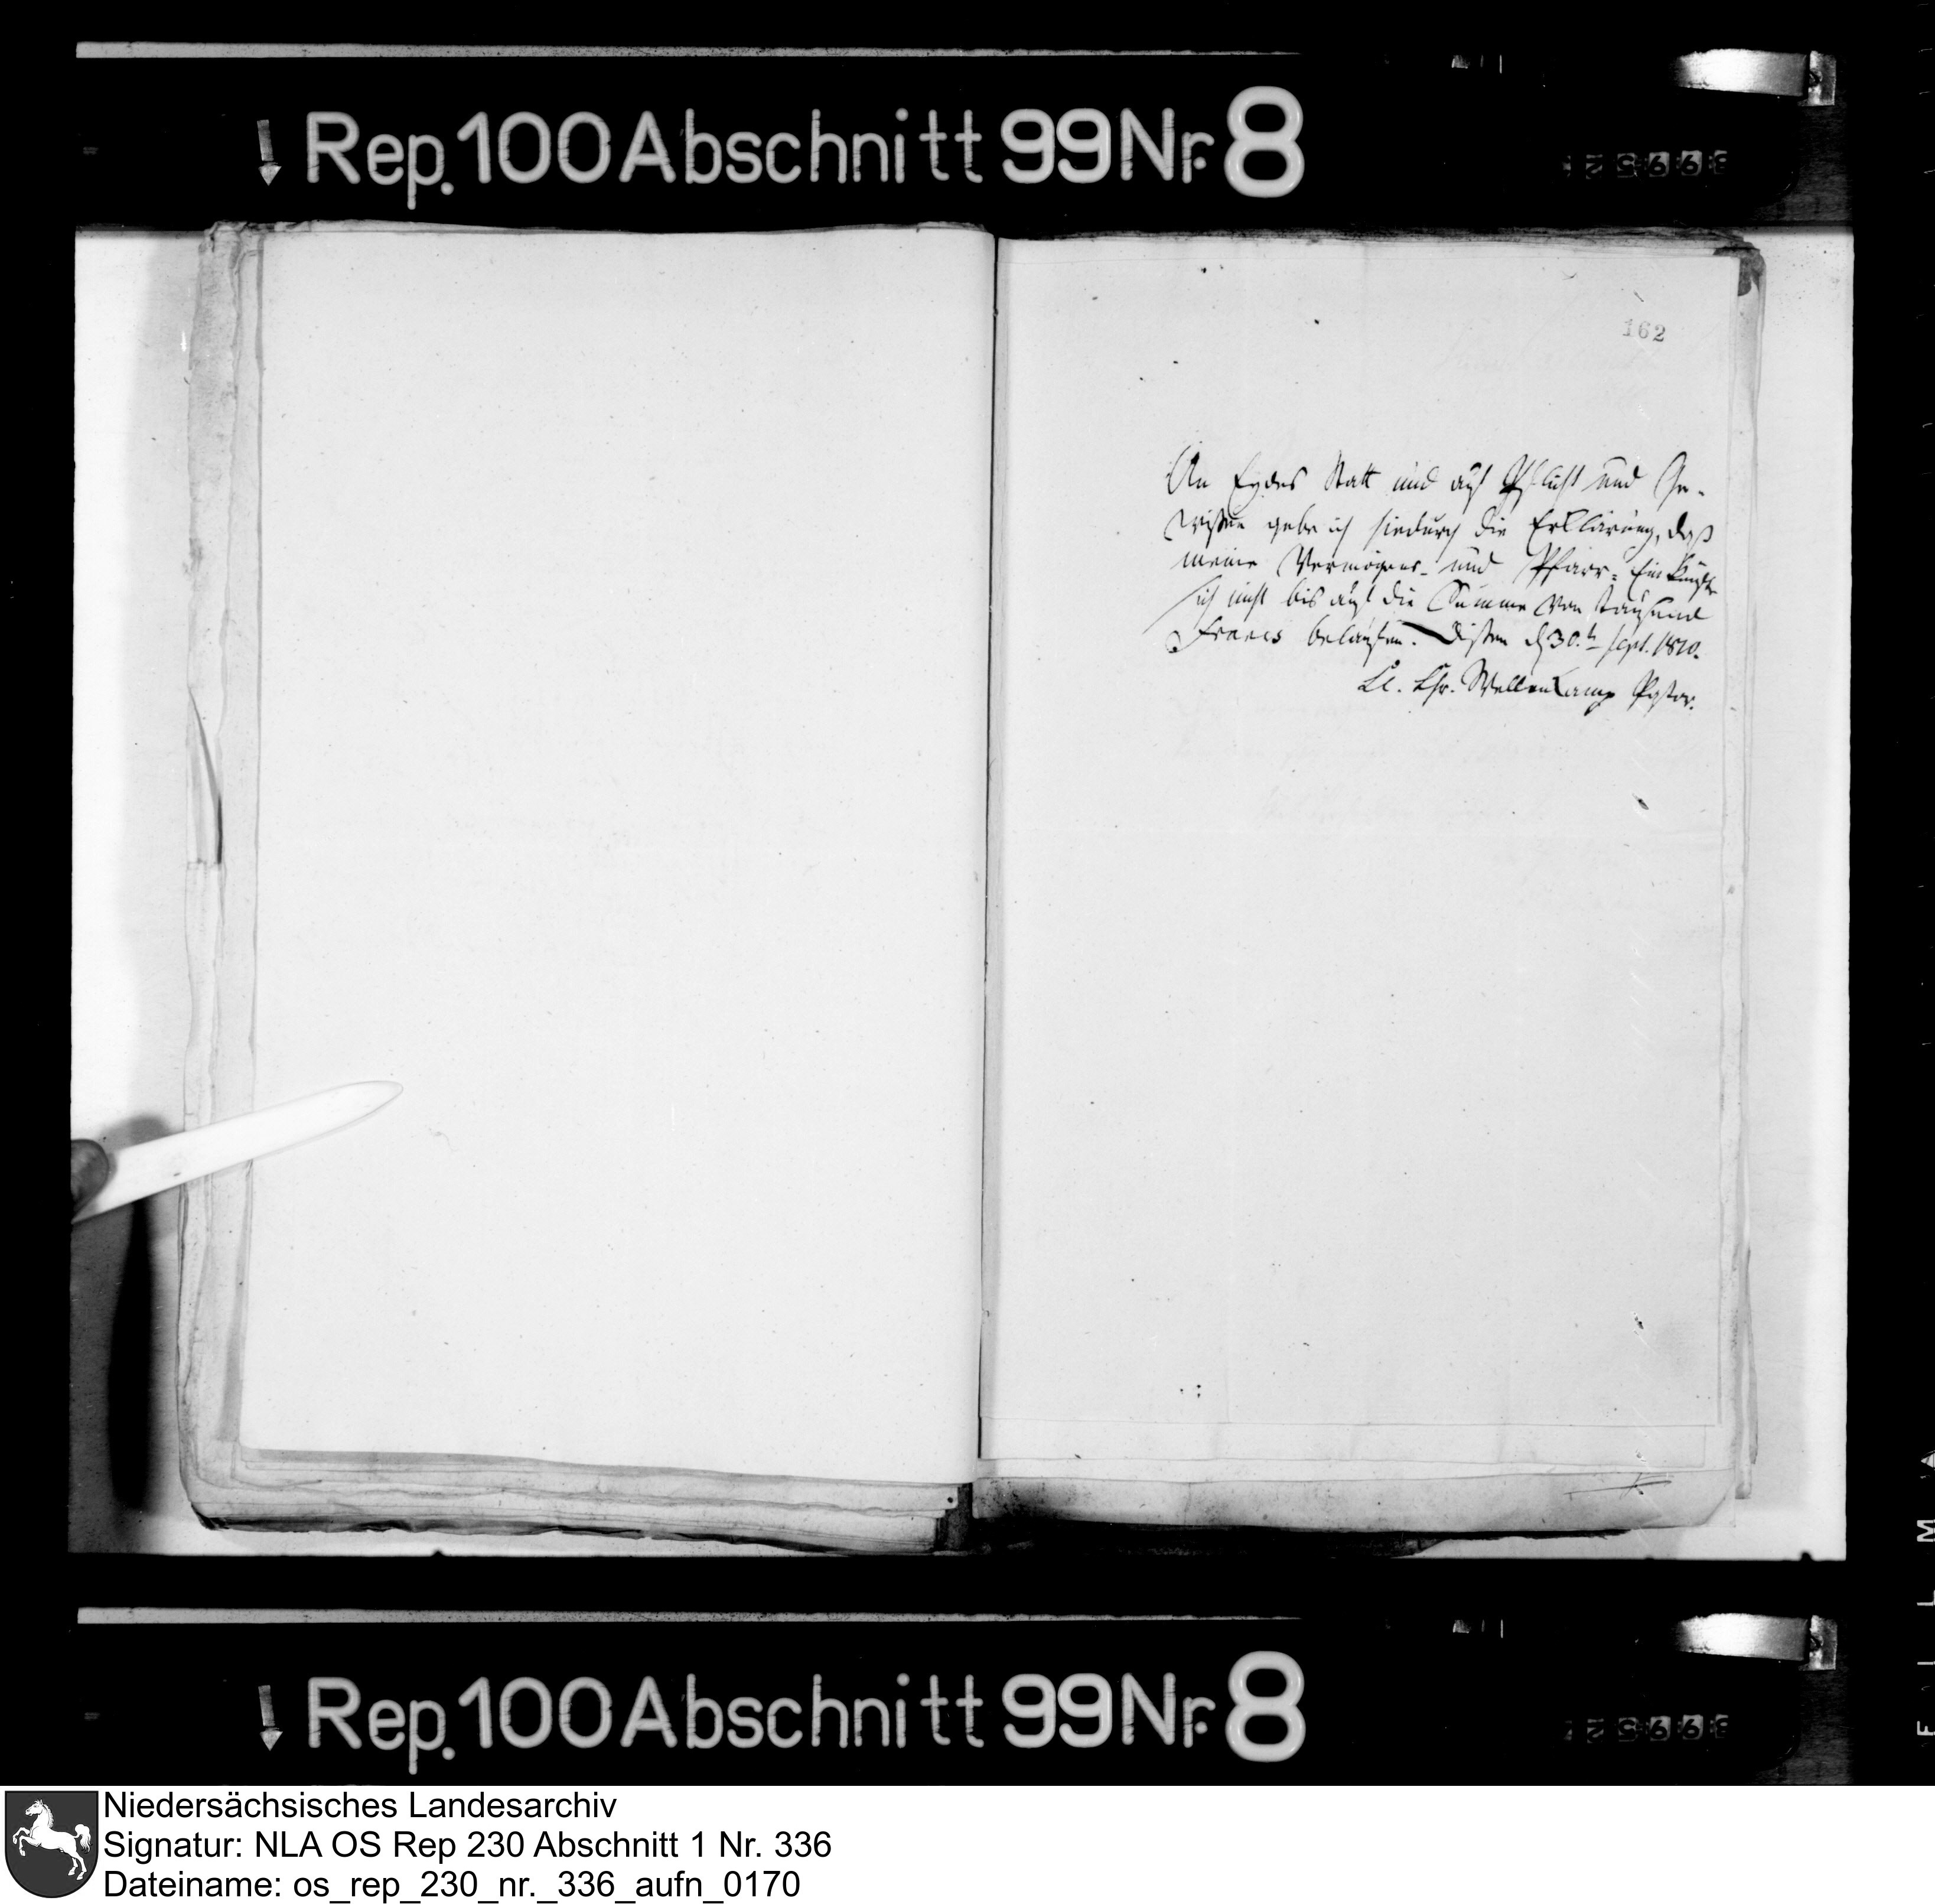 Rep. 100 Abschnitt 99 Nr. 8
162
An Eydes Statt und auf Pflicht und Ge-
wißen gebe ich hiedurch die Erklärung, daß
meine Vermögens- und Pfarr-Einkünfte
sich nicht bis auf die Summe von tausend
Francs belaufen. Dißen d. 30.t Sept. 1810.
Chr. Wellenkamp Pastor.
Rep. 100 Abschnitt 99 Nr. 8
FILM
Niedersächsisches Landesarchiv
Signatur: NLA OS Rep 230 Abschnitt 1 Nr. 336
Dateiname: os_rep_230_nr._336_aufn_0170